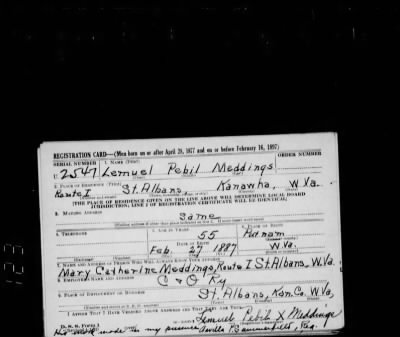 REGISTRATION CARD—(Men born on or after April 28, 1877 and on or before February 16, 1897)
SERIAL NUMBER 1. NAME (Print) ORDER NUMBER
U 2547 Lemuel Pebil Meddings
2. PLACE OF RESIDENCE (Print)
Route I St. Albans, Kanawha, W.Va.
[THE PLACE OF RESIDENCE GIVEN ON THE LINE ABOVE WILL DETERMINE LOCAL BOARD
JURISDICTION; LINE 2 OF REGISTRATION CERTIFICATE WILL BE IDENTICAL]
3. MAILING ADDRESS
Same
4. TELEPHONE 5. AGE IN YEARS 6. PLACE OF BIRTH
55 Putnam
DATE OF BIRTH
Feb. 27 1887 W.Va.
7. NAME AND ADDRESS OF PERSON WHO WILL ALWAYS KNOW YOUR ADDRESS
Mary Catherine Meddings, Route I St. Albans, W.Va.
8. EMPLOYER'S NAME AND ADDRESS
C & O Ry
9. PLACE OF EMPLOYMENT OR BUSINESS
St. Albans, Kan. Co. W.Va.
I AFFIRM THAT I HAVE VERIFIED ABOVE ANSWERS AND THAT THEY ARE TRUE.
Lemuel Pebil X Meddings
D. S. S. Form 1
His mark made in my presence